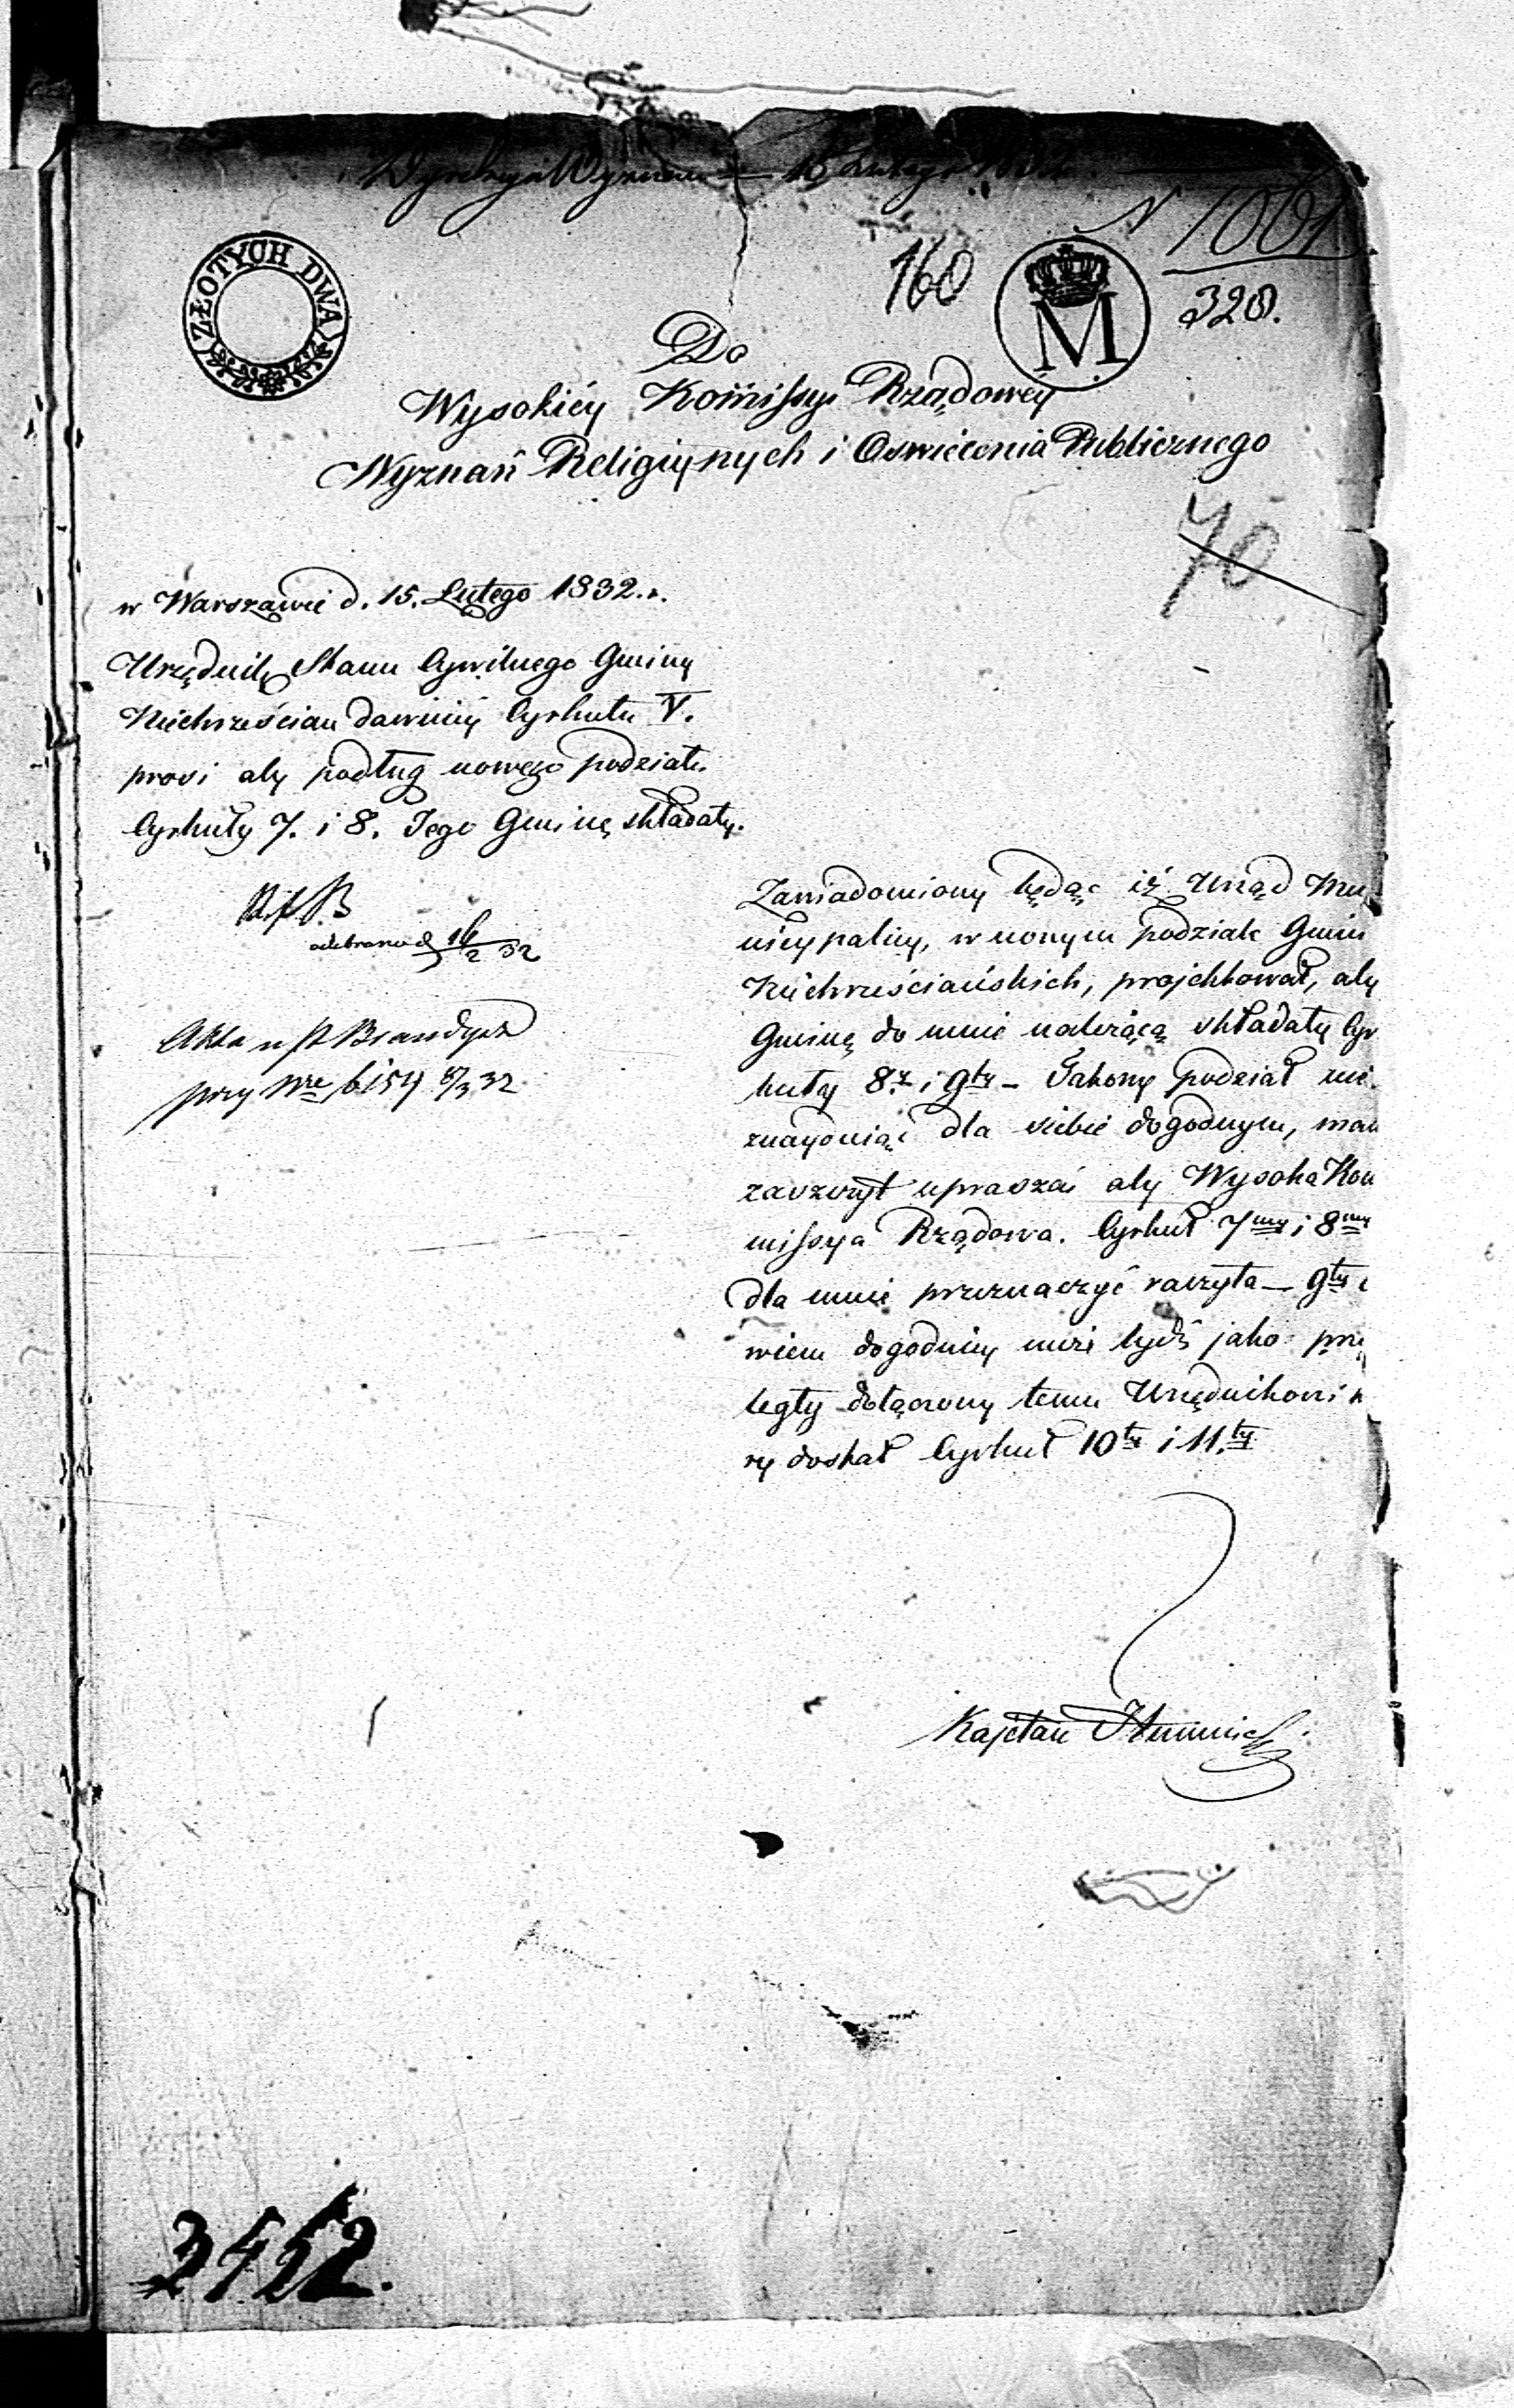 Dyrekcyi Wyznań — 16 Lutego 1832.
N 1001
328.
160
ZŁOTYCH DWA
M
Do
Wysokiéy Kom̃issyi Rządowéy
Wyznań Religiynych i Oswiecenia Publicznego
70
w Warszawie d. 15. Lutego 1832. r.
Urzędnik Stanu Cywilnego Gminy
Niechrześcian dawniéy Cyrkułu V.
prosi aby podług nowego podziału
Cyrkuły 7. i 8. Jego Gminę składały.
odebrano d 16/2 32
Akta u
przy Nre 6154 8/3 32
Zawiadomiony będąc iż Urząd Mu
nicypalny, w nowym podziale Gmin
Niechrześciańskich, projektował, aby
Gminę do mnie należącą składały Cyr
kuły 8.y i 9ty – Takowy podział nie
znayduiąc dla siebie dogodnym, mam
zaszczyt upraszać aby Wysoka Kom
missya Rządowa. Cyrkuł 7my i 8my
dla mnie przeznaczyć raczyła — 9ty
wiem dogodniey może bydź jako przy
legły dołączony temu Urzędnikowi k
ry dostał Cyrkuł 10ty i 11.ty
Kajetan
3452.